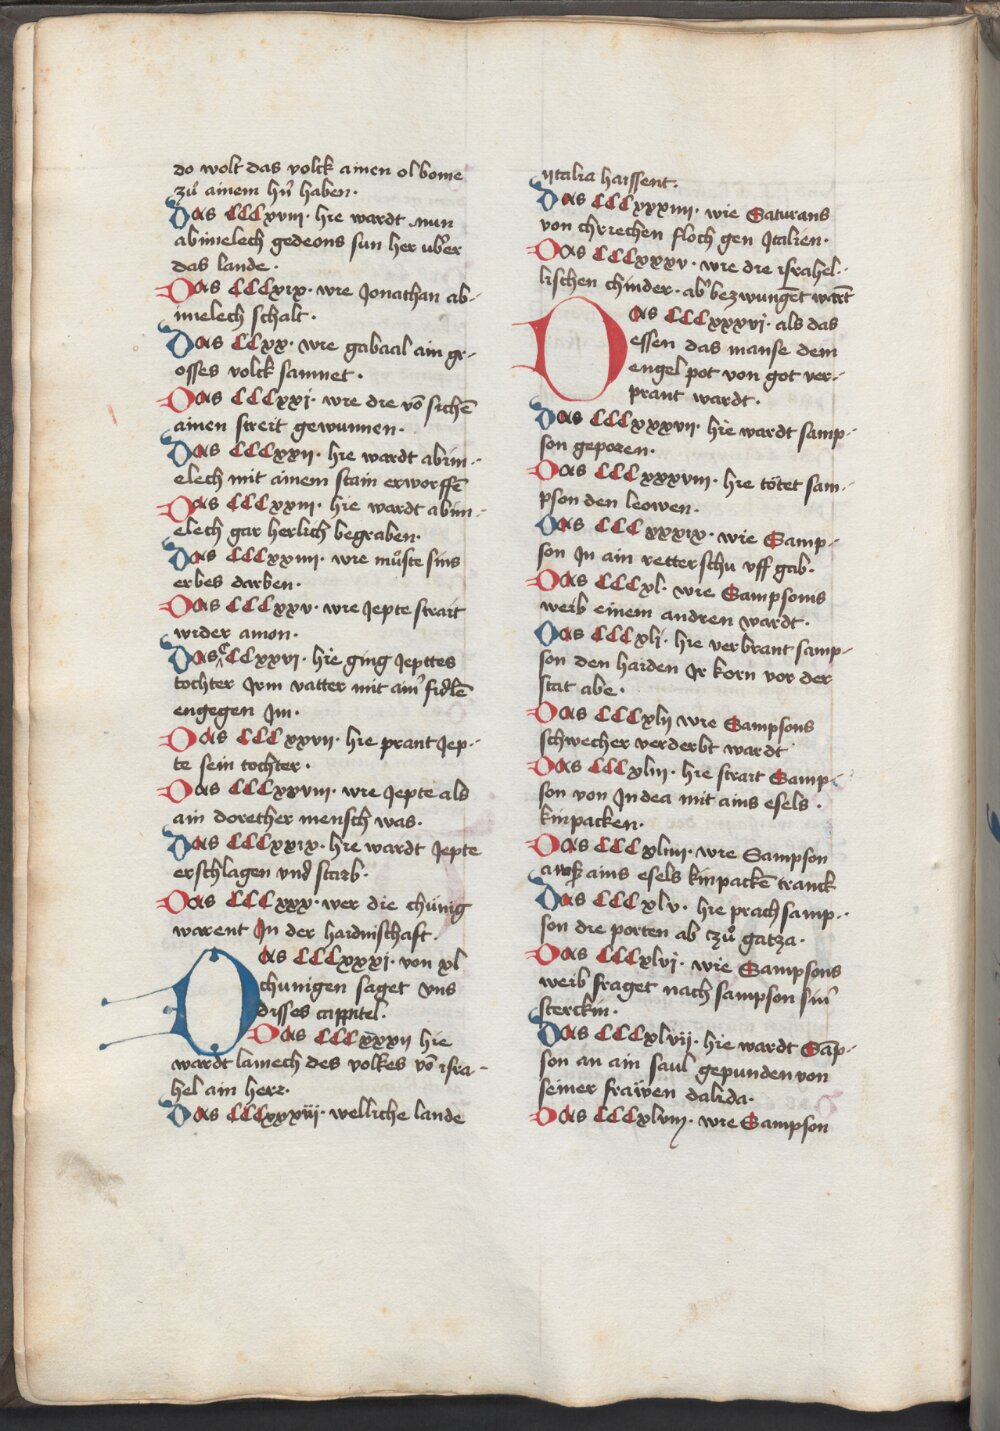 do wolt das volck ainen olbome
zů ainem hn̄ haben·
Das CCCxviii· hie wardt nun
abimelech gedeons sun her uber
das lande·
Das CCCxix· wie Jonathan ab-
imelech schalt·
Das CCxx· wie gabaal ain gr-
osses volck samnet·
Das CCCxxi· wie die vō sichē
ainen streit gewunnen·
Das CCCxxii· hie wardt abim-
elech mit ainem stain erworffē
Das CCCxxiii· hie wardt abim-
elech gar herlich begraben·
Das CCCxxiiii· wie můste sins
erbes darben·
Das CCCxxv· wie Jepte strait
wider amon·
Das CCCxxvi· hie ging Jepttes
tochter Jrm vatter mit aim̄ fidlē
engegen Jm·
Das CCCxxvii· hie prant Jep-
te sein tochter·
Das CCCxxviii· wie Jepte als
ain dorether mensch was·
Das CCCxxix· hie wardt Jepte
erschlagen vnd starb·
Das CCCxxx· wer die chünig
warent Jn der hardnischaft·
Das CCCxxxi· von xl
chunigen saget vns
disses cappitel·
Das CCCxxxii hie
wardt lamech des volkes vō isra-
hel ain here·
Das CCCxxxiii· welliche lande
ijtalia haissent·
Das CCCxxxiiii· wie Saturans
von chriechen floch gen Jtalien·
Das CCCxxxv· wie die israhel-
lischen chinder· ab bezwungēt wart
Das CCCxxxvi· als das
essen das manse dem
engel pot von got ver-
prant wardt·
Das CCCxxxvii· hie wardt samp-
son geporen·
Das CCCxxxviii· hie tötet sam-
pson den leowen·
Das CCCxxxix· wie Samp-
son Jn ain retterschu uff gab·
Das CCCxl· wie Sampsonis
weib einem andren wardt·
Das CCCxli· hie verbrant samp-
son den haiden Jr korn vor der
stat abe·
Das CCCxlii wie Sampsons
schwecher verderbt wardt
Das CCCxliii· hie strait Samp-
son von Judea mit ains esels·
kinpacken·
Das CCCxliiii· wie Sampson
ains esels kinpackē tranck
Das CCCxlv· hie prach samp-
son die porten ab czů gatza·
Das CCCxlvi· wie Sampsons
weib fraget nach sampson sin̄
sterckin·
Das CCCxlvii· hie wardt Sāp-
son an ain saul gepunden von
seiner fraẅen dalida·
Das CCCxlviii· wie Sampson